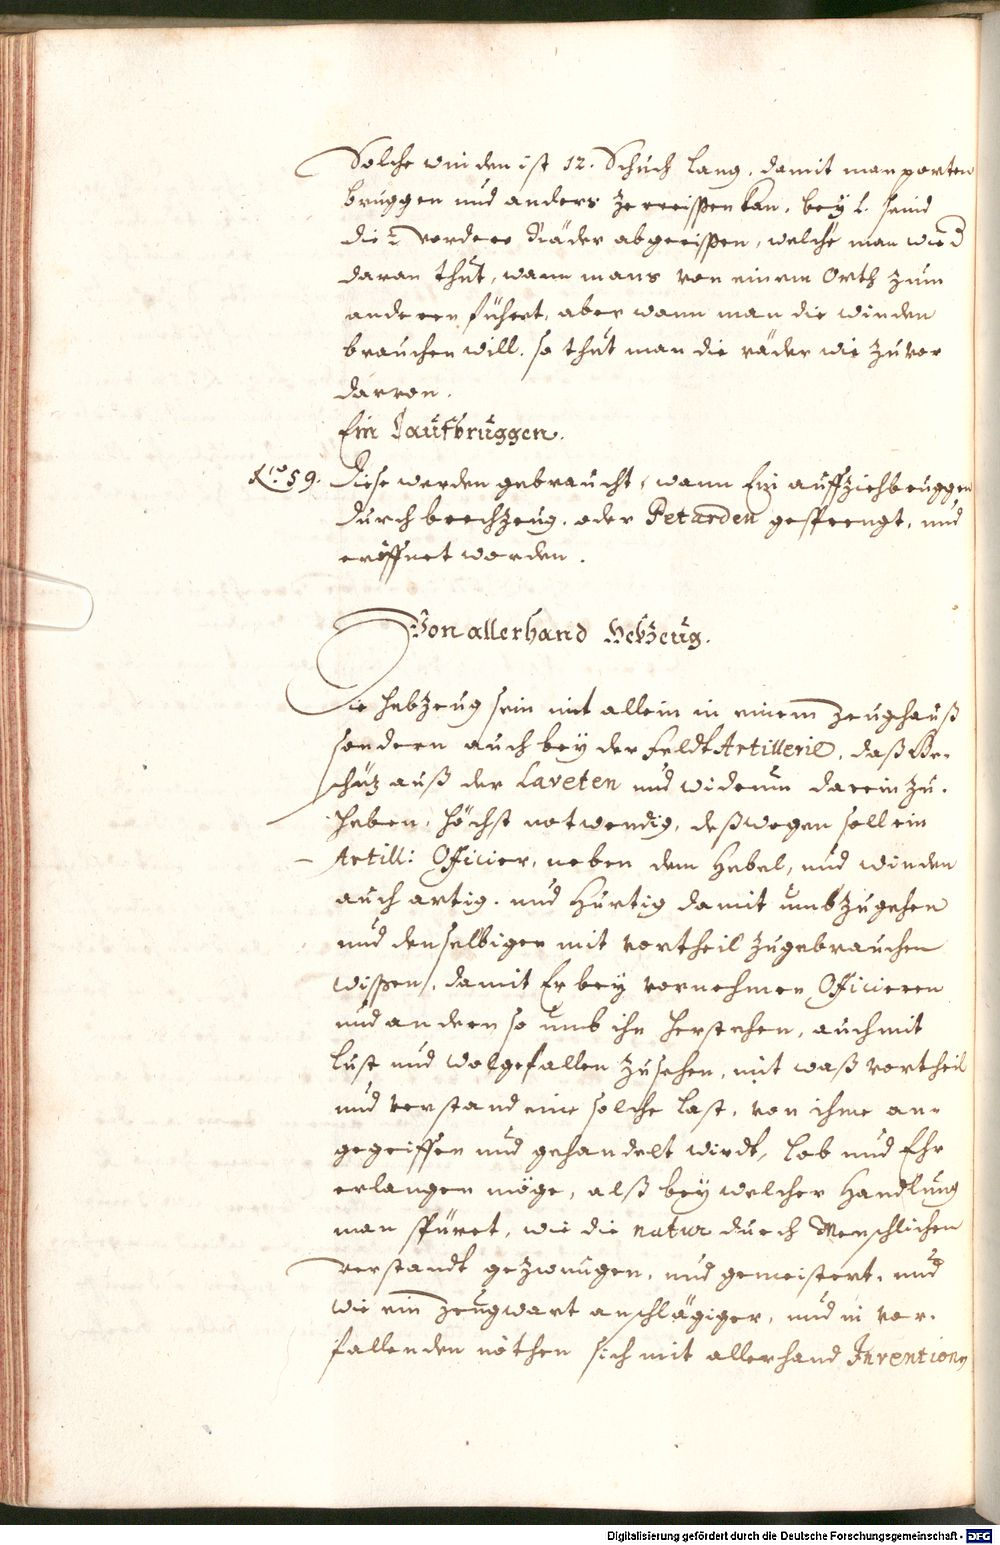 Solche winden ist 12. Schuch lang, damit man porten
bruggen und anders zerreissen kan, bey L. seind
die 2 vordere Räder abgerissen, welche man wird
daran thut, wann mans von einem Orth zum
anderen führet, aber wann man die winden
brauchen will, so thut man die räder wie zuvor
darvon.
Ein Laufbruggen.
No. 59. Diese werden gebraucht, wann Ein auffziehbruggen
durch brechzeug, oder Petarden gesprengt, und
eröffnet worden.
Von allerhand Hebzeug.
Die Hebzeug sein nit allein in einem Zeughauß
sondern auch bey der Feldt Artillerie, daß Ge-
schütz auß der Laveten und widerum darein zu-
heben, höchst notwendig, deßwegen soll ein
Artill: Officier, neben dem Hebel, und winden
auch artig, und hurtig damit umbzugehen
und denselbigen mit vortheil zugebrauchen
wissen, damit Er bey vornehmen Officieren
und andern so umb ihn herstehen, auch mit
lust und wolgefallen zusehen, mit waß vortheil
und verstand eine solche last, von ihme an-
gegriffen und gehandelt wirdt, lob und Ehr
erlangen möge, alß bey welcher Handlung
man spüret, wie die natur durch Menschlichen
verstandt gezwungen, und gemeistert, und
wie ein Zeugwart anschlägiger, und in vor-
fallenden nöthen sich mit allerhand Invention
Digitalisierung gefördert durch die Deutsche Forschungsgemeinschaft - DFG